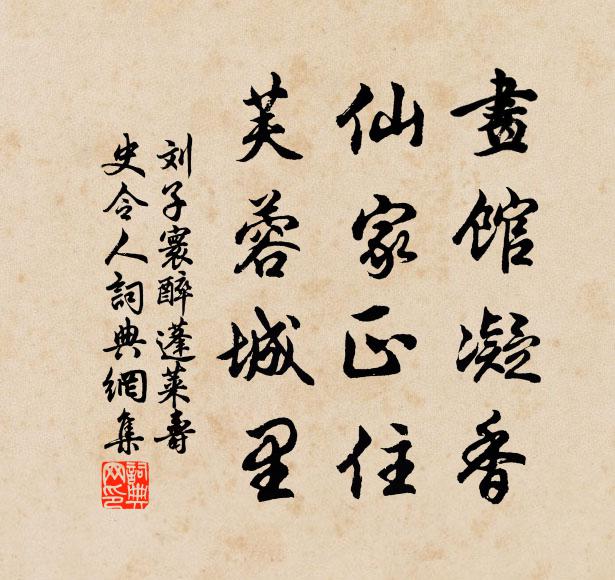 畫館凝香
仙家正住
芙蓉城里
刘子寰醉蓬莱壽
史令人詞典網集
詞典网印